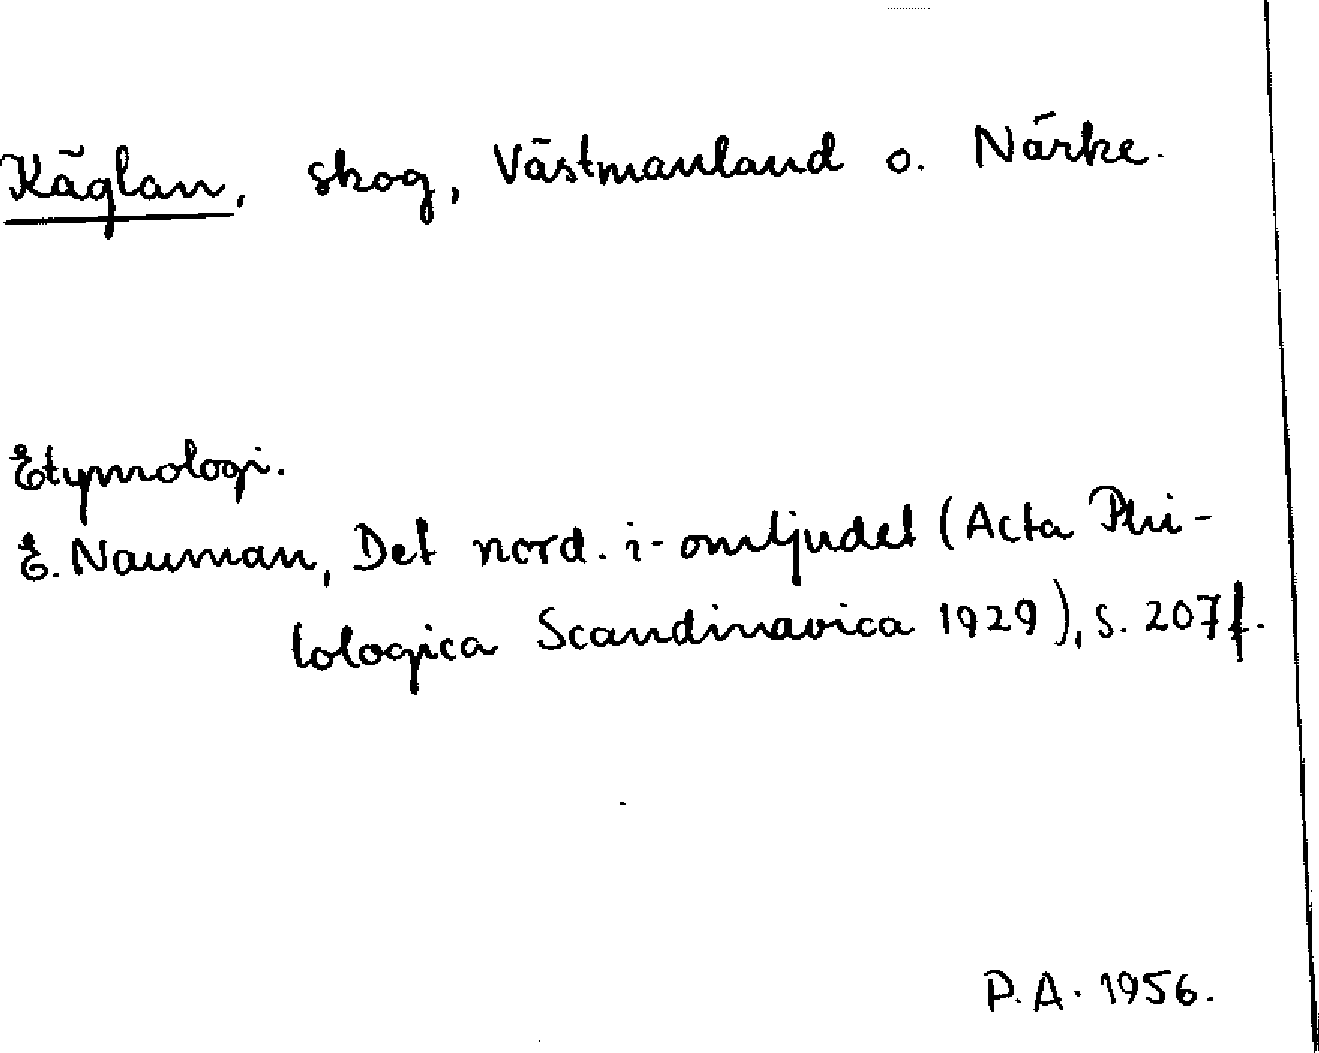 Käglan, skog, Västmanland o. Närke.
Etymologi.
E. Nauman, Det nord. i-omljudet (Acta Phi-
lologica Scandinavica 1929), s. 207 f.
P. A. 1956.